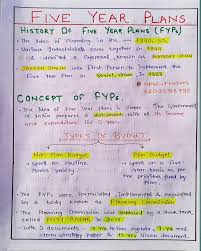 FIVE YEAR PLANS
HISTORY OF FIVE YEAR PLANS (FYPs)
• The Idea of Planning in the 1940-50s
• Various Industrialists came together in 1944
& drafted a Proposal, known as Bombay Plan
• Joseph Stalin was First Person to Implement the
Five Year Plan in Soviet Union in 1928
CONCEPT OF FYPs
• The Idea of Five Year Plans is Simple - The Government
of India prepares a document with all its Income
and expenditure for 5 years
TYPES OF BUDGET
Non Plan Budget
Plan Budget
• spent on routine
items yearly
• spent on a Five
Year basis as per
the priorities fixed by
Plan
• The FYPs were formulated, implemented & regulated
by a body known Planning Commission
• The Planning Commission was replaced by a think tank,
called NITI AAYOG in 2015
• With 3 documents - 3-Yr action agenda, 7-Yr
strategy paper & 15 Yrs Vision document